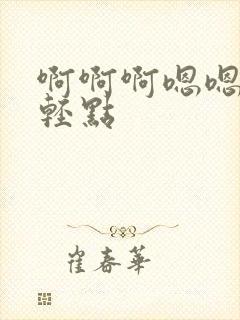 啊啊啊嗯嗯
輕點
崔春華